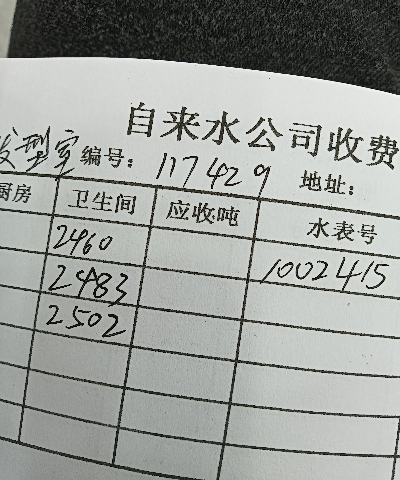 自来水公司收费
发型室 编号: 117429 地址:
厨房 卫生间 应收吨 水表号
2460 1002415
2483
2502